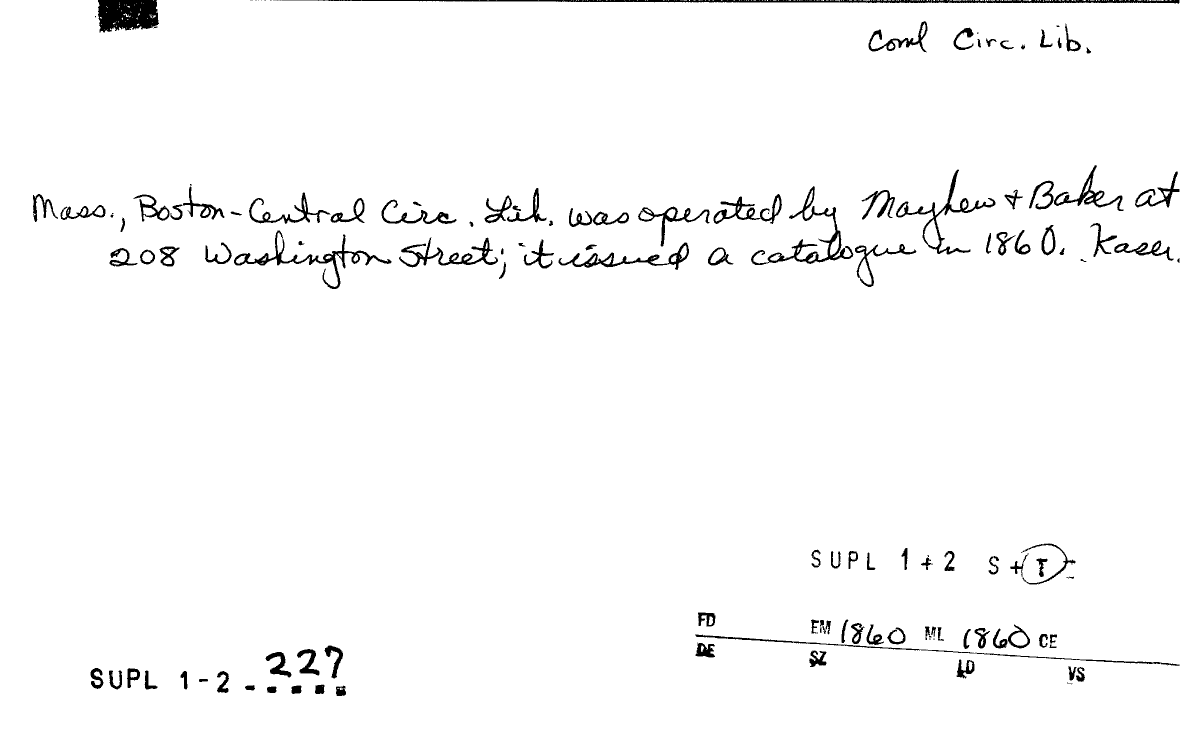 Coml Circ. Lib.
Mass., Boston-Central Circ. Lib. was operated by Mayhew + Baker at
208 Washington Street; it issued a catalogue in 1860. Kaser.
SUPL 1+2 S+T
FD EM 1860 ML 1860 CE
DE SZ LD VS
SUPL 1-2 227